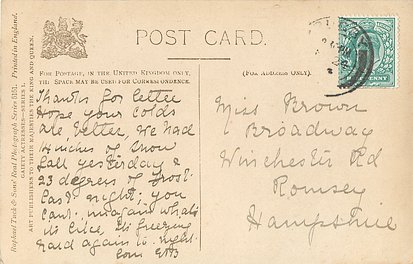 POST CARD.
FOR POSTAGE, IN THE UNITED KINGDOM ONLY,
THIS SPACE MAY BE USED FOR CORRESPONDENCE.
(FOR ADDRESS ONLY).
Raphael Tuck & Sons' Real Photograph Series Printed in England.
GAIETY ACTRESSES—SERIES I.
ART PUBLISHERS TO THEIR MAJESTIES THE KING AND QUEEN.
Thanks for letter
Hope your colds
are better, we had
4 inches of snow
fall yesterday &
23 degrees of frost
last night; you
cant imagine whats
its like its freezing
hard again to night
love
Miss Brown
Broadway
Winchester Rd
Romsey
Hampshire